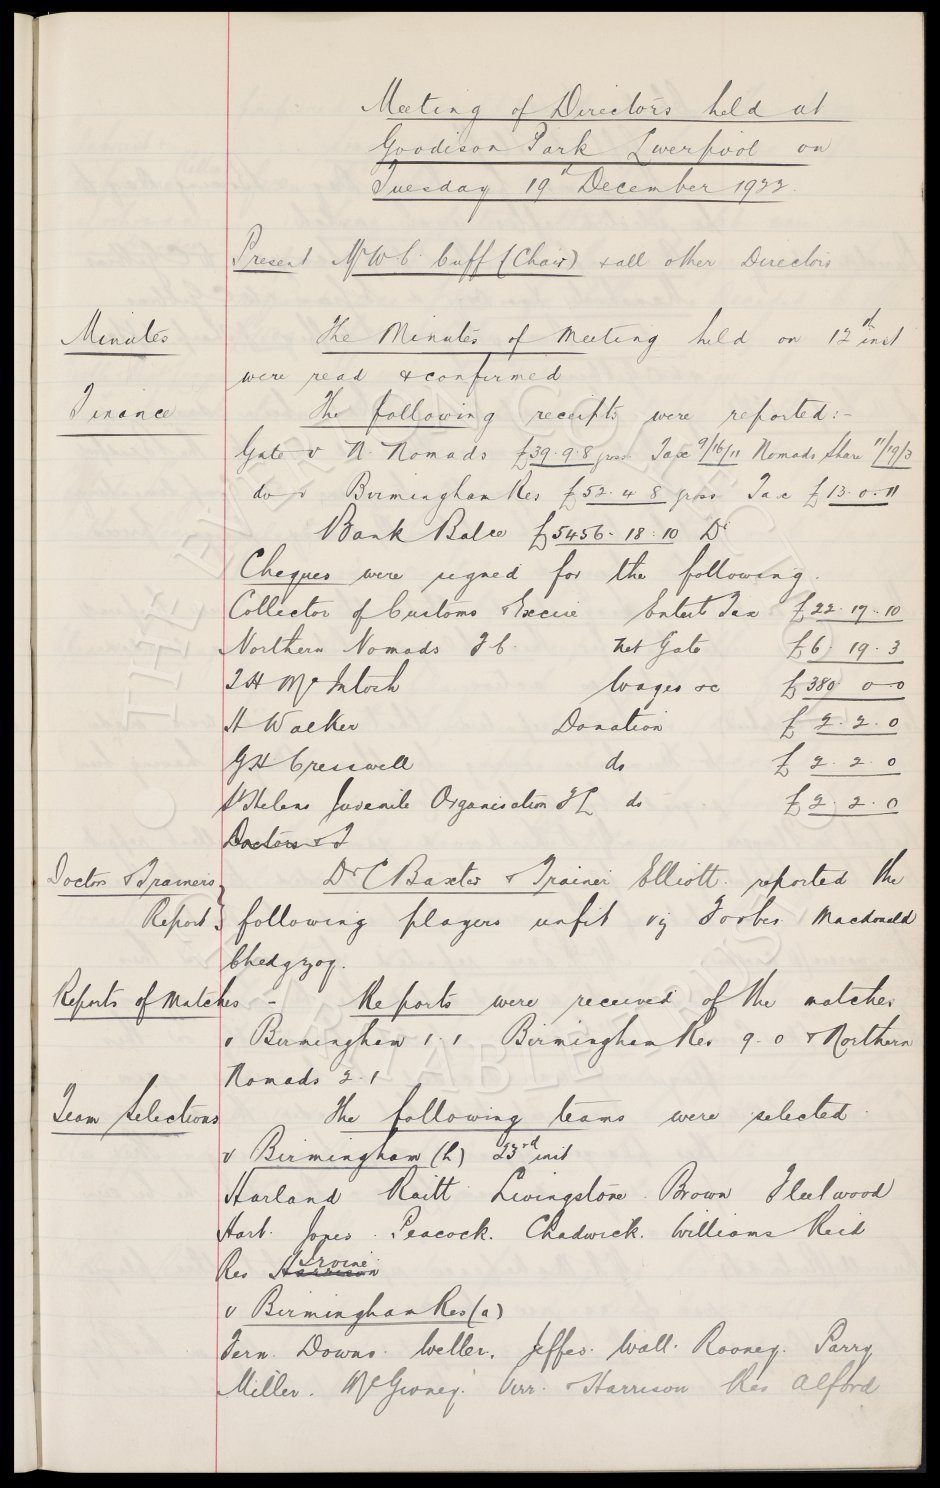 Meeting of Directors held at
Goodison Park Liverpool on
Tuesday 19th December 1922.
Present Mr W C Cuff (Chair) & all other Directors
Minutes The Minutes of Meeting held on 12th inst
were read & confirmed
Finance The following receipts were reported:-
Gate v N. Nomads £39.9.8 gross Tax 9/16/11 Nomads Share 11/19/3
do v Birmingham Res £52.4.8 gross Tax £13.0.11
Bank Balce £5456.18.10 Dr
Cheques were signed for the following.
Collector of Customs & Excise Entert Tax £22.17.10
Northern Nomads F C. Net Gate £6.19.3
T H McIntosh Wages &c £380 0-0
H Walker Donation £2.2.0
G H Cresswell do £2.2.0
St Helens Juvenile Organisation F L do £2.2.0
Doctors & T
Doctor & Trainers Dr C Baxter & Trainer Elliott reported the
Report following players unfit viz Forbes Macdonald
Chedgzoy.
Reports of Matches - Reports were received of the matches
v Birmingham 1.1 Birmingham Res 9-0 & Northern
Nomads 2.1
Team Selections The following teams were selected
v Birmingham (h) 23rd inst
Harland Raitt Livingstone. Brown Fleetwood
Hart. Jones. Peacock. Chadwick. Williams Reid
Res Harrison Irvine
v Birmingham Res (a)
Fern. Downs. Weller. Jeffes. Wall. Rooney. Parry
Miller. McGivney. Virr. & Harrison Res Alford
THE EVERTON COLLECTION
CHARITABLE TRUST